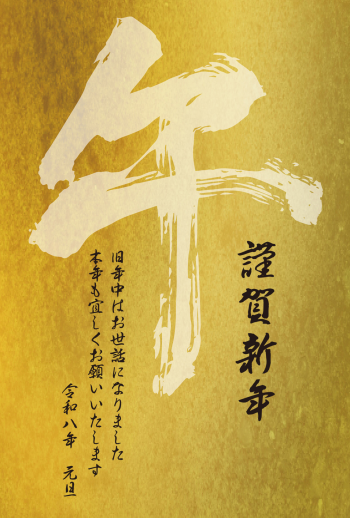 午
謹賀新年
旧年中はお世話になりました
本年も宜しくお願いいたします
令和八年 元旦